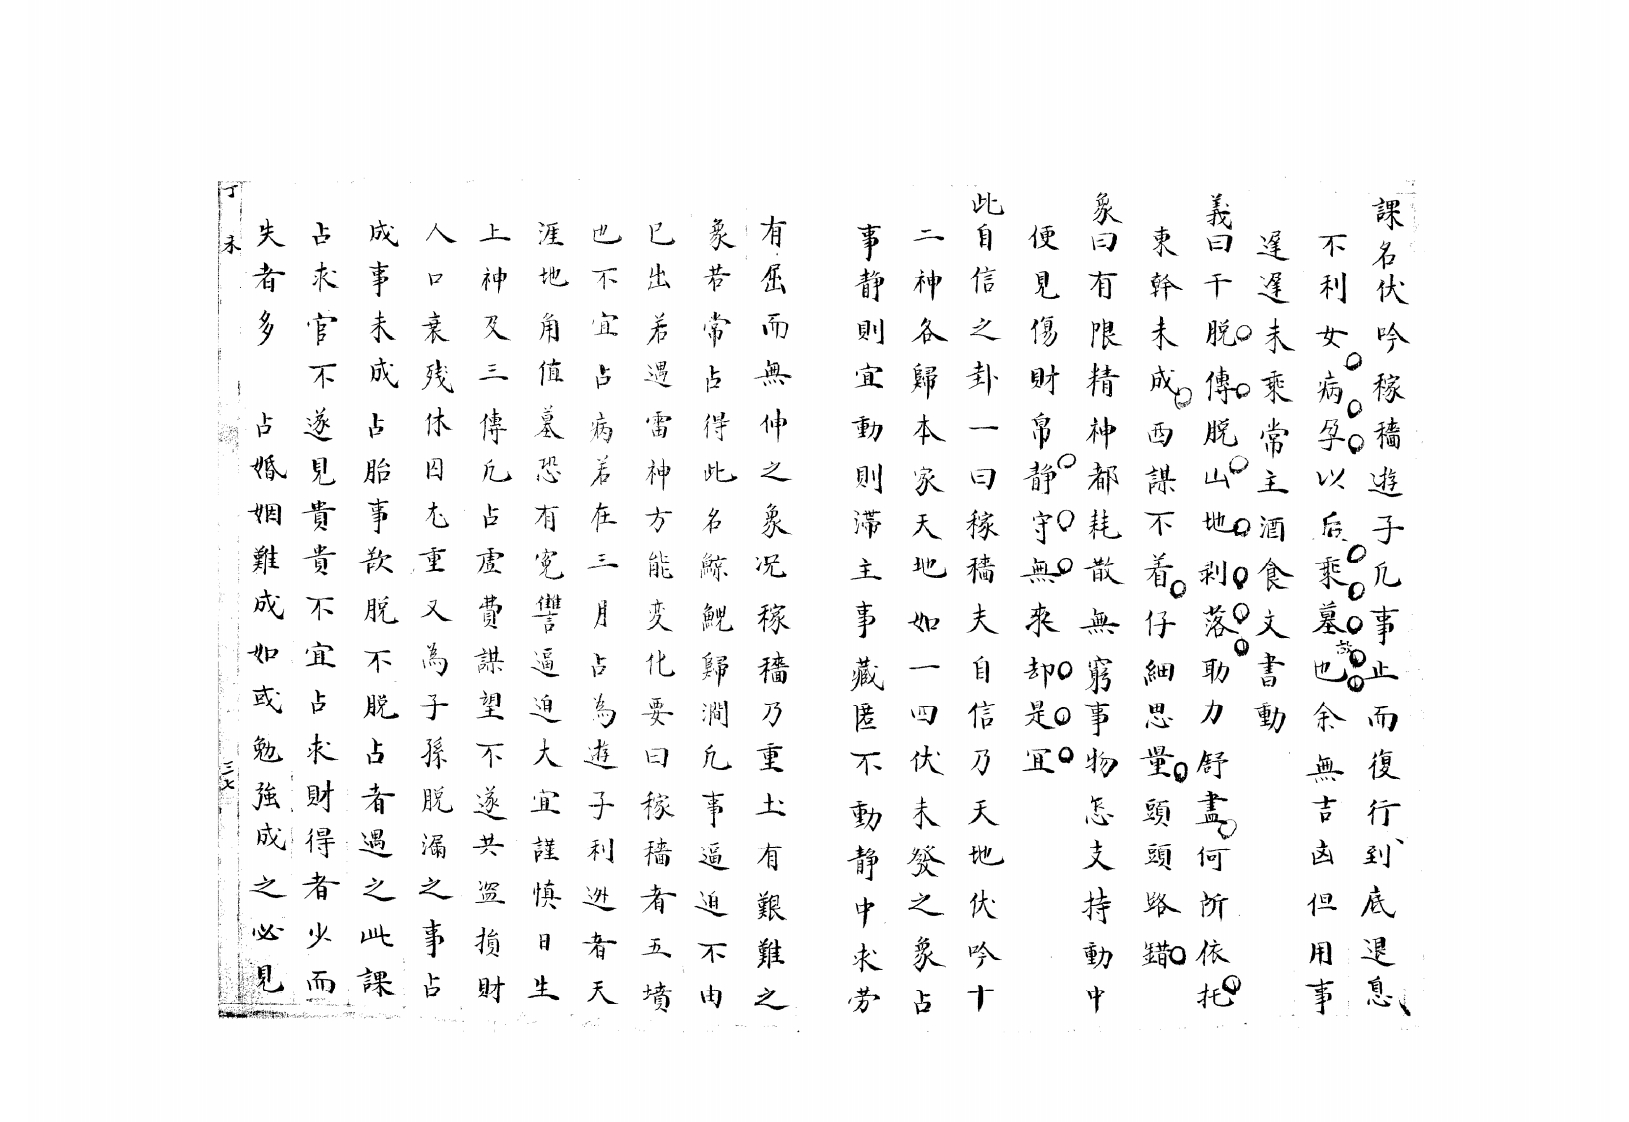 課名伏吟稼穡遊子凡事止而復行到底退息
不利女病孕以后乘墓也余無吉凶但用事
遲遲未乘常主酒食文書動
義曰干脫傳脫山地剥落助力舒盡何所依托
東幹未成西謀不着仔細思量頭頭路錯
象曰有限精神都耗散無窮事物怎支持動中
便見傷財帛静守無來却是宜
此自信之卦一曰稼穡夫自信乃天地伏吟十
二神各歸本家天地如一四伏未發之象占
事静則宜動則滯主事藏匿不動静中求劳
有屈而無伸之象况稼穡乃重土有艱難之
象若常占得此名鯨鯢歸澗凡事逼迫不由
已出若遇雷神方能变化要曰稼穡者五墳
也不宜占病若在三月占為遊子利迯者天
涯地角值墓恐有寃讐逼迫大宜謹慎日生
上神及三傳凡占虛費謀望不遂共盗損財
人口衰残休囚尤重又為子孫脫漏之事占
成事未成占胎事欲脫不脫占者遇之此課
占求官不遂見貴貴不宜占求財得者少而
失者多 占婚姻難成如或勉強成之必見
丁未
三七